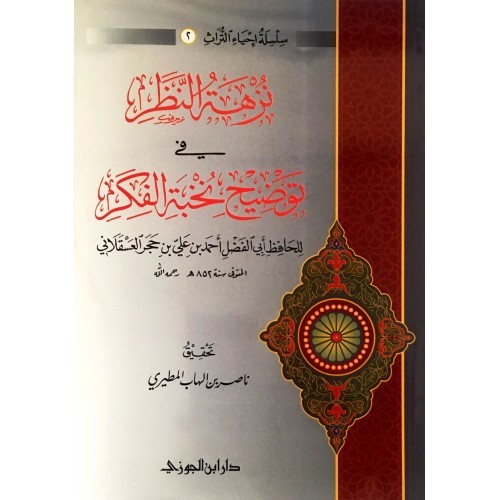 سِلْسِلَةُ إِحْيَاءِ التُّرَاثِ ٢
نُزْهَةُ النَّظَرِ
في
تَوْضِيْحِ نُخْبَةِ الْفِكَرِ
لِلحَافِظِ أَبِي الفَضْلِ أَحمَدَ بنِ عَلِيِّ بنِ حَجَرٍ العَسْقَلَانِي
المتوفى سنة ٨٥٢هـ رحمه الله
تَحْقِيْقُ
ناصر بن الهاب المطيري
دار ابن الجوزي